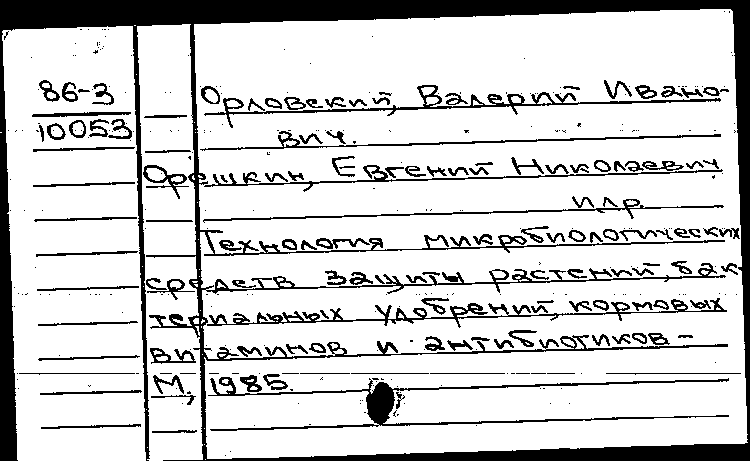 86-3
10053
Орловский, Валерий Ивано-
вич.
Орешкин, Евгений Николаевич
и др
Технология микробиологических
средств защиты растений, бак-
териальных удобрений, кормовых
витаминов и антибиотиков –
М, 1985.